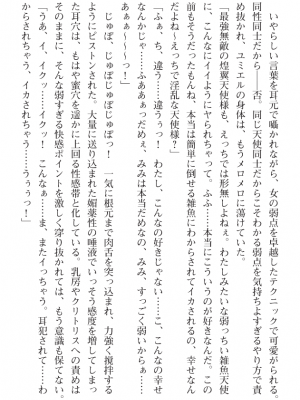 いやらしい言葉を耳元で囁かれながら、女の弱点を卓越したテクニックで可愛がられる。
同性同士だから――否。同じ天使同士だからこそわかる弱点を気持ちよすぎるやり方で責
め抜かれ、ユミエルの身体は、もうメロメロに蕩けていた。
「最強無敵の煌翼天使様も、えっちでは形無しよねぇ。わたしみたいな弱っちい雑魚天使
に、こんなにイイようにヤられちゃって、ふふ……本当にこういうのが好きなんだ。この
前もそうだったもんね。本当は簡単に倒せる雑魚にわからされてイカされるの、幸せなん
だよね～えっちで淫乱な天使様？」
「ふぁ、ち、違う……違うっ！　わたし、こんなの好きじゃない……！　こんなの幸せ
なんかじゃ……ふああぁっだめぇ、みみは本当だめなの、みみ、すっごく弱いからぁ……
あぁぁ～～～っ！」
じゅぽ、じゅぽじゅぽじゅぽっ！　一気に根元まで肉舌を突き込まれ、力強く攪拌する
ようにピストンされた。大量に送り込まれた媚薬性の唾液でいっそう感度を増してしまっ
た耳穴は、もはや蜜穴を遥かに上回る性感帯と化している。乳房やクリトリスへの責めは
そのままに、そんな弱すぎる快感ポイントを激しく穿り抜かれては、もう意識も保てない。
「うあ、イ、イクッ……イクッ！　こんなぁ……ま、またイっちゃう。耳犯されて……わ
からされちゃう、イカされちゃう……うぅうっ！」